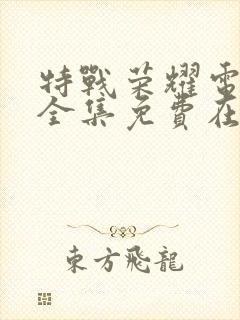 特戰荣耀電
全集免費在
東方飛龍